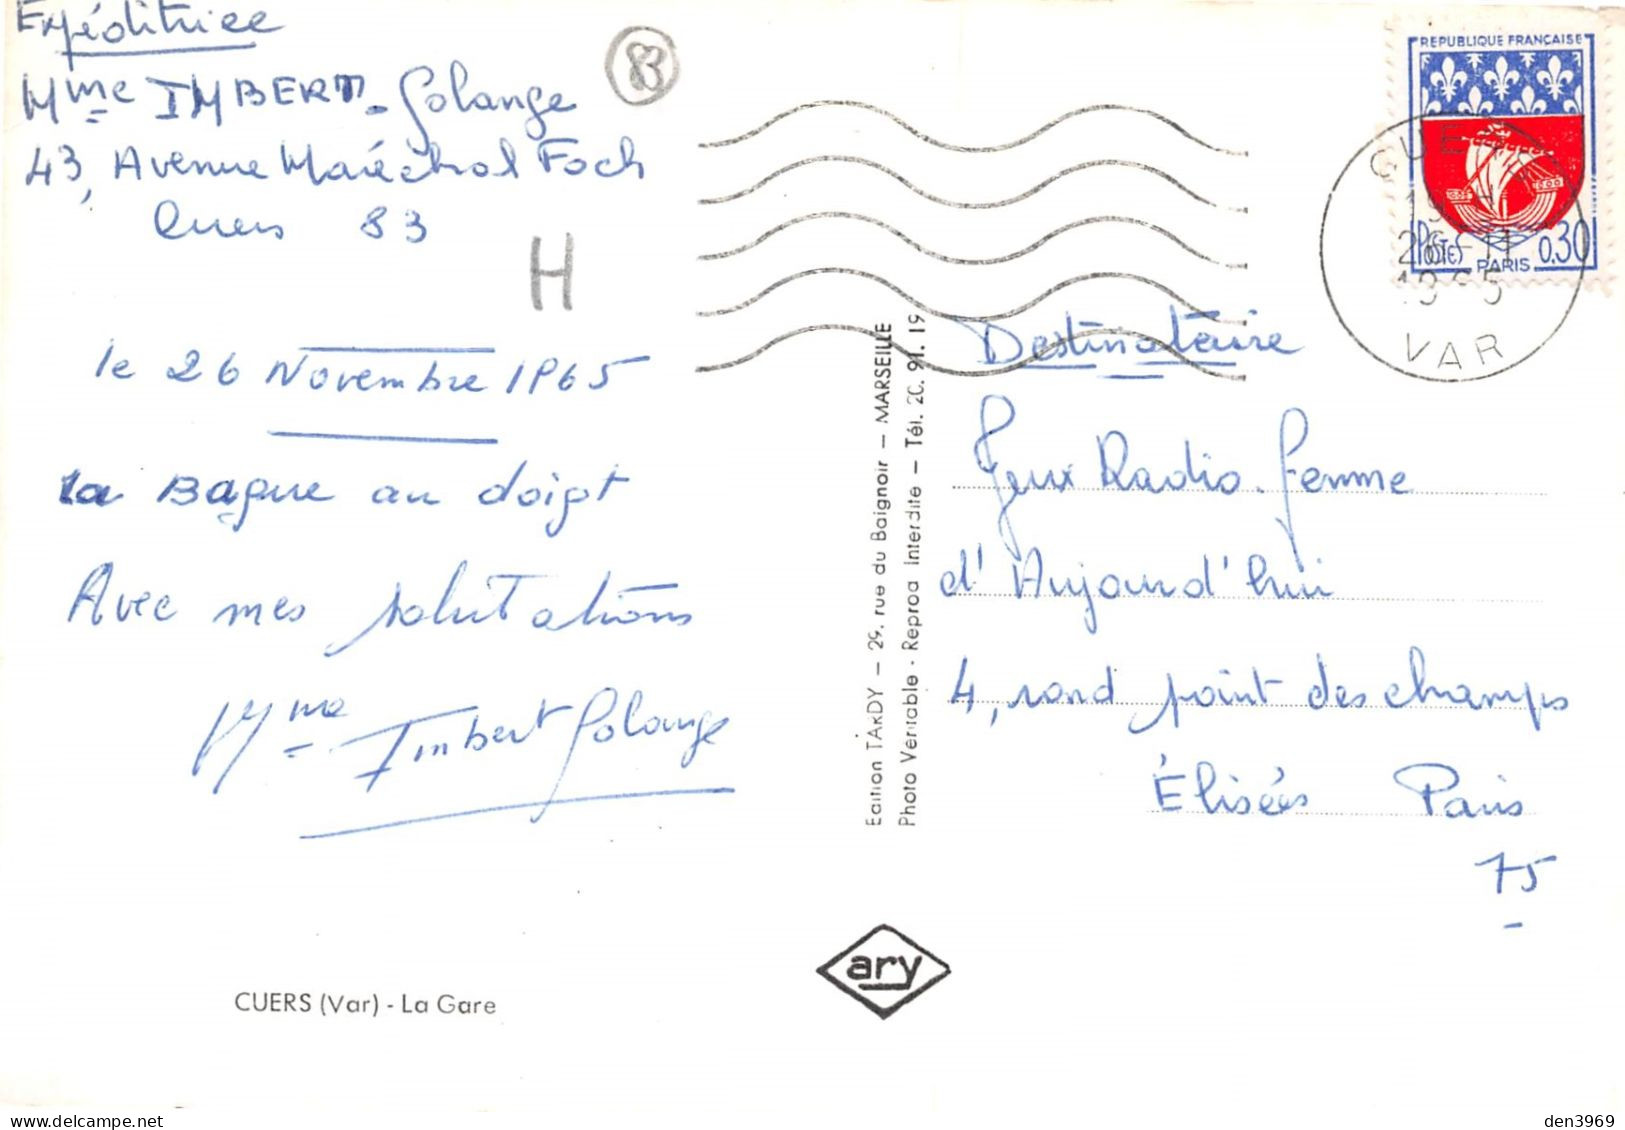 Expéditrice
Mme IMBERT - Solange
43, Avenue Maréchal Foch
Cuers 83
83
H
le 26 Novembre 1965
La Bague au doigt
Avec mes salutations
Mme Imbert Solange
CUERS (Var) - La Gare
Edition TARDY — 29, rue du Baignoir — MARSEILLE
Photo Véritable - Reprod Interdite — Tél. 20. 91. 19
ary
REPUBLIQUE FRANÇAISE
POSTES PARIS 0,30
CUERS
19 H
26 - 11
1965
VAR
Destinataire
Jeux Radio-femme
d'Aujourd'hui
4, rond point des champs
Élisées Paris
75
den3969